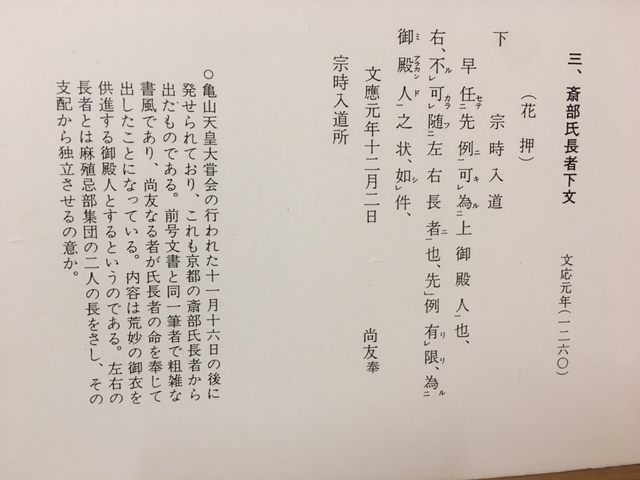 三、斎部氏長者下文
文応元年(一二六〇)
(花押)
下 宗時入道
早任セテ二先例一ニ可キレ為ル二上御殿人一也、
右、不ルレ可カラレ随フ二左右長者一ニ也、先例有リレ限リ、為ル二
御殿人ミアラカンド一之状、如シレ件、
文應元年十二月二日
尚友奉
宗時入道所
○亀山天皇大甞会の行われた十一月十六日の後に
発せられており、これも京都の斎部氏長者から
出たものである。前号文書と同一筆者で粗雑な
書風であり、尚友なる者が氏長者の命を奉じて
出したことになっている。内容は荒妙の御衣を
供進する御殿人とするというのである。左右の
長者とは麻殖忌部集団の二人の長をさし、その
支配から独立させるの意か。